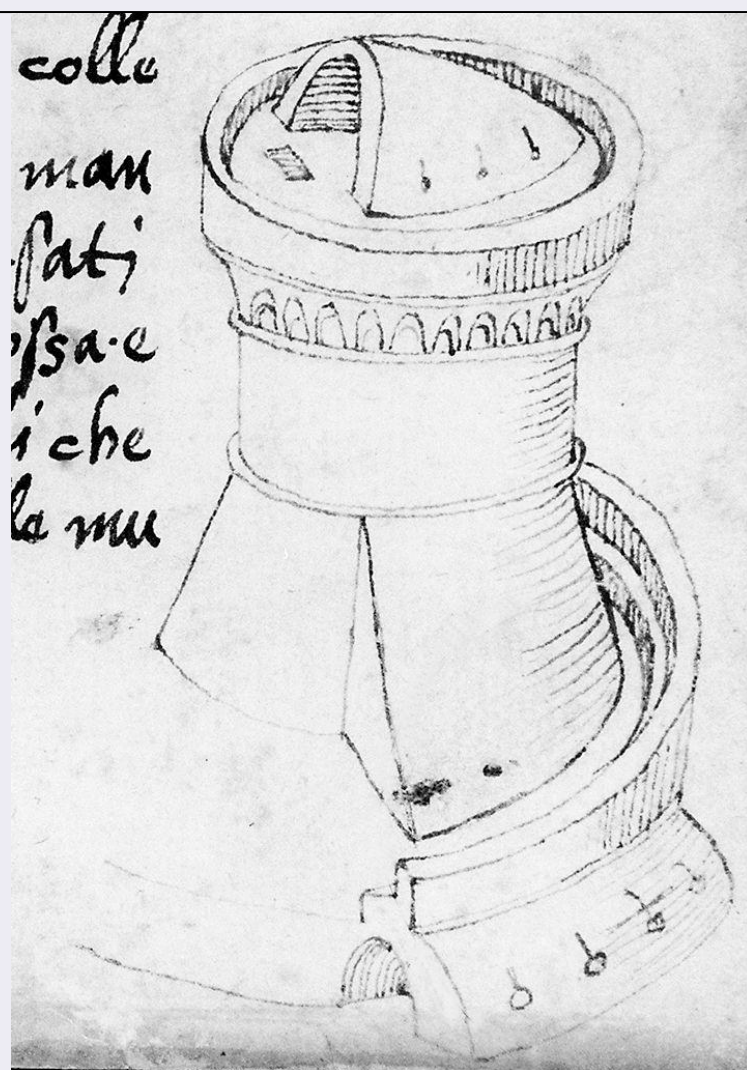 colle
man
ſati
ſsa·e
i che
le mu